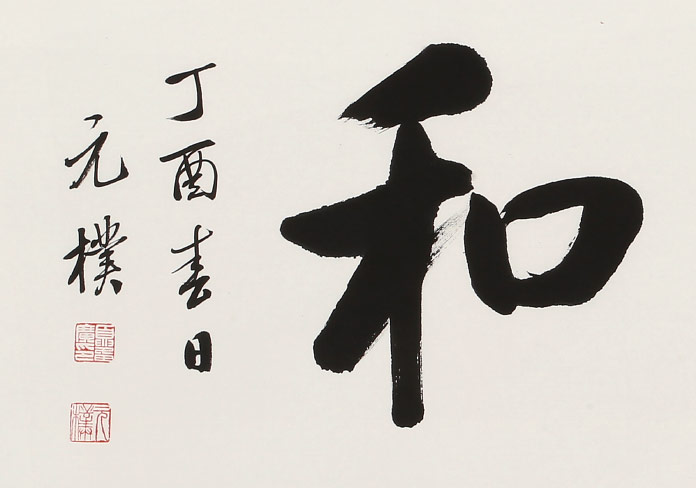 和
丁酉春日
元樸